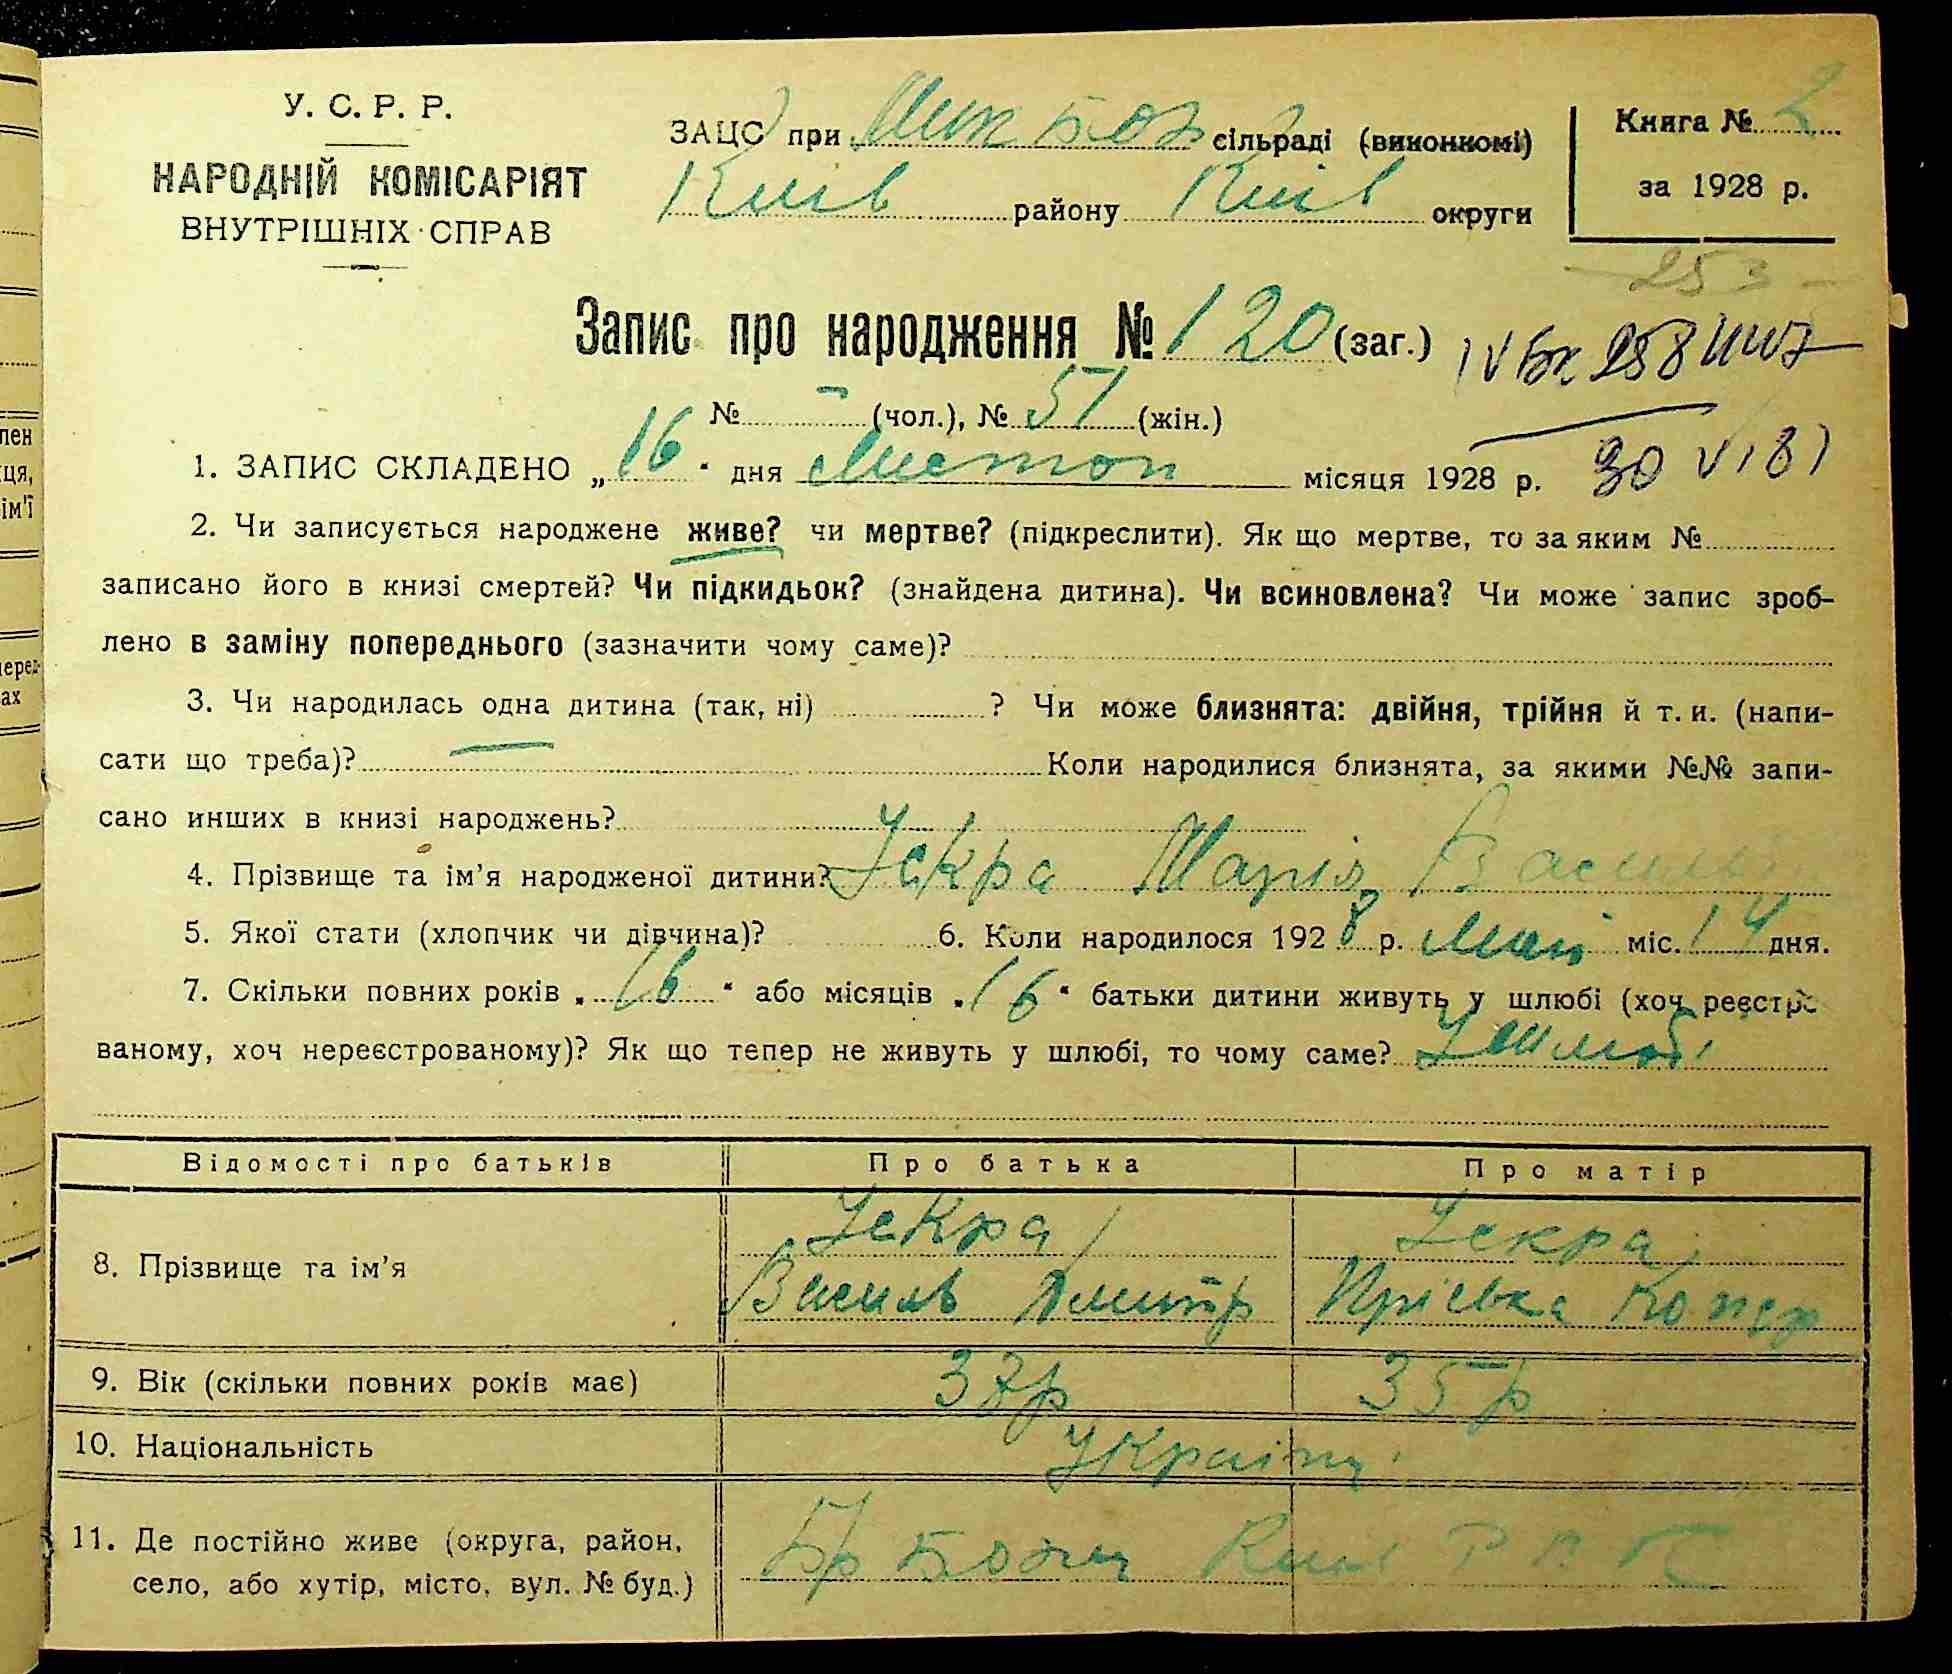 У. С. Р. Р.
НАРОДНІЙ КОМІСАРІЯТ
ВНУТРІШНІХ СПРАВ
ЗАЦС при Мик Бор сільраді (виконкомі)
Київ району Київ округи
Книга № 2
за 1928 р.
253
Запис про народження № 120 (заг.)
№ - (чол.), № 51 (жін.)
30 VI 81
1. ЗАПИС СКЛАДЕНО „16“ дня Листоп місяця 1928 р.
2. Чи записується народжене живе? чи мертве? (підкреслити). Як що мертве, то за яким №
записано його в книзі смертей? Чи підкидьок? (знайдена дитина). Чи всиновлена? Чи може запис зроб-
лено в заміну попереднього (зазначити чому саме)?
3. Чи народилась одна дитина (так, ні) ? Чи може близнята: двійня, трійня й т. и. (напи-
сати що треба)? Коли народилися близнята, за якими №№ запи-
сано инших в книзі народжень?
4. Прізвище та ім’я народженої дитини? Іскра Марія Василь
5. Якої стати (хлопчик чи дівчина)? 6. Коли народилося 1928 р. Май міс. 14 дня.
7. Скільки повних років „16“ або місяців „16“ батьки дитини живуть у шлюбі (хоч реєстро
ваному, хоч нереєстрованому)? Як що тепер не живуть у шлюбі, то чому саме? У шлюбі
Відомості про батьків Про батька Про матір
8. Прізвище та ім’я Іскра Іскра
Василь Дмитр Пріська
9. Вік (скільки повних років має) 37р 35р
10. Національність Україн
11. Де постійно живе (округа, район,
село, або хутір, місто, вул. № буд.)